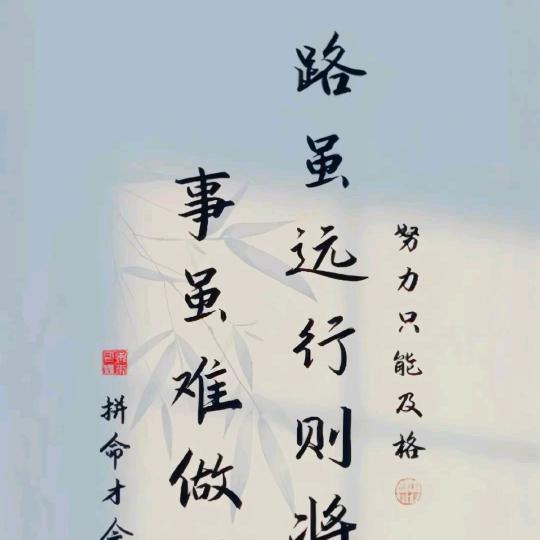 努力只能及格
路虽远行则将
事虽难做
拼命才会